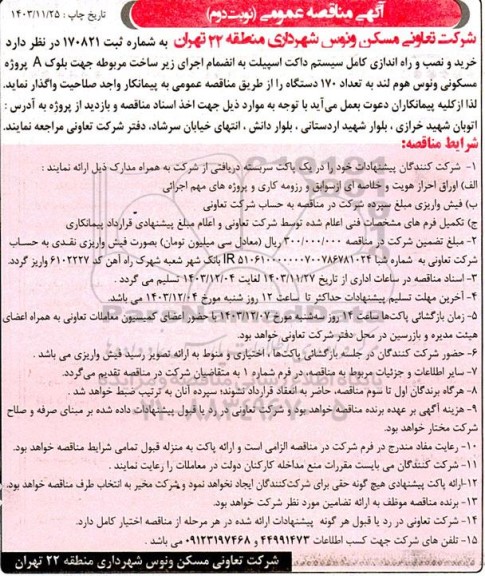 تاریخ چاپ : ۱۴۰۳/۱۱/۲۵
آگهی مناقصه عمومی (نوبت دوم)
شرکت تعاونی مسکن ونوس شهرداری منطقه ۲۲ تهران به شماره ثبت ۱۷۰۸۲۱ در نظر دارد
خرید و نصب و راه اندازی کامل سیستم داکت اسپیلت به انضمام اجرای زیر ساخت مربوطه جهت بلوک A پروژه
مسکونی ونوس هوم لند به تعداد ۱۷۰ دستگاه را از طریق مناقصه عمومی به پیمانکار واجد صلاحیت واگذار نماید.
لذا ازکلیه پیمانکاران دعوت بعمل می‌آید با توجه به موارد ذیل جهت اخذ اسناد مناقصه و بازدید از پروژه به آدرس :
اتوبان شهید خرازی ، بلوار شهید اردستانی ، بلوار دانش ، انتهای خیابان سرشاد، دفتر شرکت تعاونی مراجعه نمایند.
شرایط مناقصه:
۱- شرکت کنندگان پیشنهادات خود را در یک پاکت سربسته دریافتی از شرکت به همراه مدارک ذیل ارائه نمایند :
الف) اوراق احراز هویت و خلاصه ای ازسوابق و رزومه کاری و پروژه های مهم اجرائی
ب) فیش واریزی مبلغ سپرده شرکت در مناقصه به حساب شرکت تعاونی
ج) تکمیل فرم های مشخصات فنی اعلام شده توسط شرکت تعاونی و اعلام مبلغ پیشنهادی قرارداد پیمانکاری
۲- مبلغ تضمین شرکت در مناقصه ۳۰۰/۰۰۰/۰۰۰ ریال (معادل سی میلیون تومان) بصورت فیش واریزی نقدی به حساب
شرکت تعاونی به شماره شبا IR ۵۱۰۶۱۰۰۰۰۰۰۰۷۰۰۷۸۶۷۸۱۰۲۴ بانک شهر شعبه شهرک راه آهن کد ۶۱۰۲۲۲۷ واریز گردد.
۳- اسناد مناقصه در ساعات اداری از تاریخ ۱۴۰۳/۱۱/۲۷ لغایت ۱۴۰۳/۱۲/۰۴ تسلیم می گردد .
۴- آخرین مهلت تسلیم پیشنهادات حداکثر تا ساعت ۱۲ روز شنبه مورخ ۱۴۰۳/۱۲/۰۴ می باشد.
۵- زمان بازگشائی پاکت‌ها ساعت ۱۴ روز سه‌شنبه مورخ ۱۴۰۳/۱۲/۰۷ با حضور اعضای کمیسیون معاملات تعاونی به همراه اعضای
هیئت مدیره و بازرسین در محل دفتر شرکت تعاونی خواهد بود.
۶- حضور شرکت کنندگان در جلسه بازگشائی پاکت‌ها ، اختیاری و منوط به ارائه تصویر رسید فیش واریزی می باشد .
۷- سایر اطلاعات و جزئیات مربوط به مناقصه، در فرم شماره ۱ به متقاضیان شرکت در مناقصه تقدیم می‌گردد.
۸- هرگاه برندگان اول تا سوم مناقصه، حاضر به انعقاد قرارداد نشوند؛ سپرده آنان به ترتیب ضبط خواهد شد .
۹- هزینه آگهی بر عهده برنده مناقصه خواهد بود و شرکت تعاونی در رد یا قبول پیشنهادات داده شده بر مبنای صرفه و صلاح
شرکت مختار خواهد بود.
۱۰- رعایت مفاد مندرج در فرم شرکت در مناقصه الزامی است و ارائه پاکت به منزله قبول تمامی شرایط مناقصه خواهد بود.
۱۱- شرکت کنندگان می بایست مقررات منع مداخله کارکنان دولت در معاملات را رعایت نمایند .
۱۲-ارائه پاکت پیشنهادی هیچ گونه حقی برای شرکت‌کنندگان ایجاد نخواهد نمود و شرکت مخیر به انتخاب طرف مناقصه خواهد بود.
۱۳- برنده مناقصه موظف به ارائه تضامین مورد نظر شرکت خواهد بود.
۱۴- شرکت تعاونی در رد یا قبول هر گونه پیشنهادات ارائه شده در هر مرحله از مناقصه اختیار کامل دارد.
۱۵- تلفن های شرکت جهت کسب اطلاعات ۴۴۹۹۱۴۷۳ و ۰۹۱۲۳۱۹۷۴۶۸ می باشد .
شرکت تعاونی مسکن ونوس شهرداری منطقه ۲۲ تهران